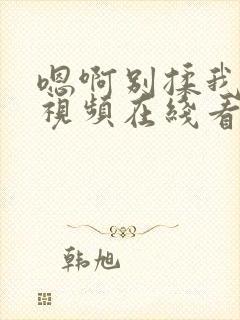 嗯啊别揉我
視頻在綫看
韩旭